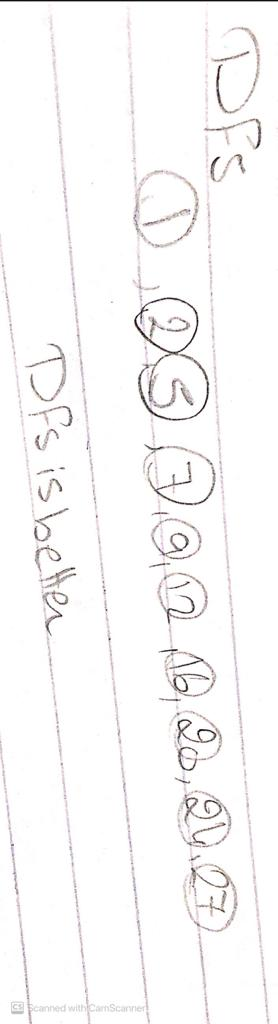 DFS
1, 2, 5, 7, 9, 12, 16, 20, 24, 27
DFS is better
CS Scanned with CamScanner